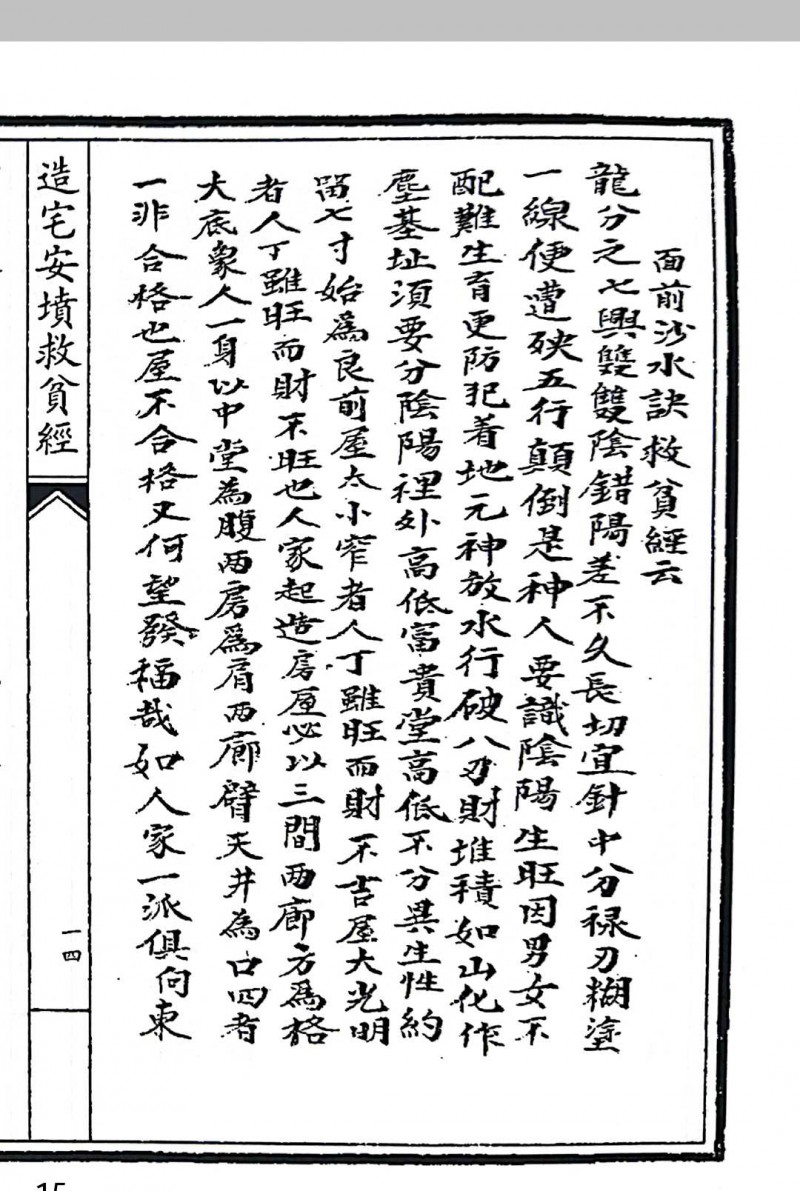 面前沙水訣救貧經云
龍分之七興雙雙陰錯陽差不久長切宜針中分祿刃糊塗
一線便遭殃五行顛倒是神人要識陰陽生旺因男女不
配難生育更防犯着地元神放水行破八刃財堆積如山化作
塵基址須要分陰陽裡外高低富貴堂高低不分異生性約
留七寸始為良前屋太小窄者人丁雖旺而財不吉屋大光明
者人丁雖旺而財不旺也人家起造房屋必以三間兩廊方為格
大底象人一身以中堂為腹兩房為肩兩廊臂天井為口四者
一非合格也屋不合格又何望發福哉如人家一派俱向東
造宅安墳救貧經
一四
15